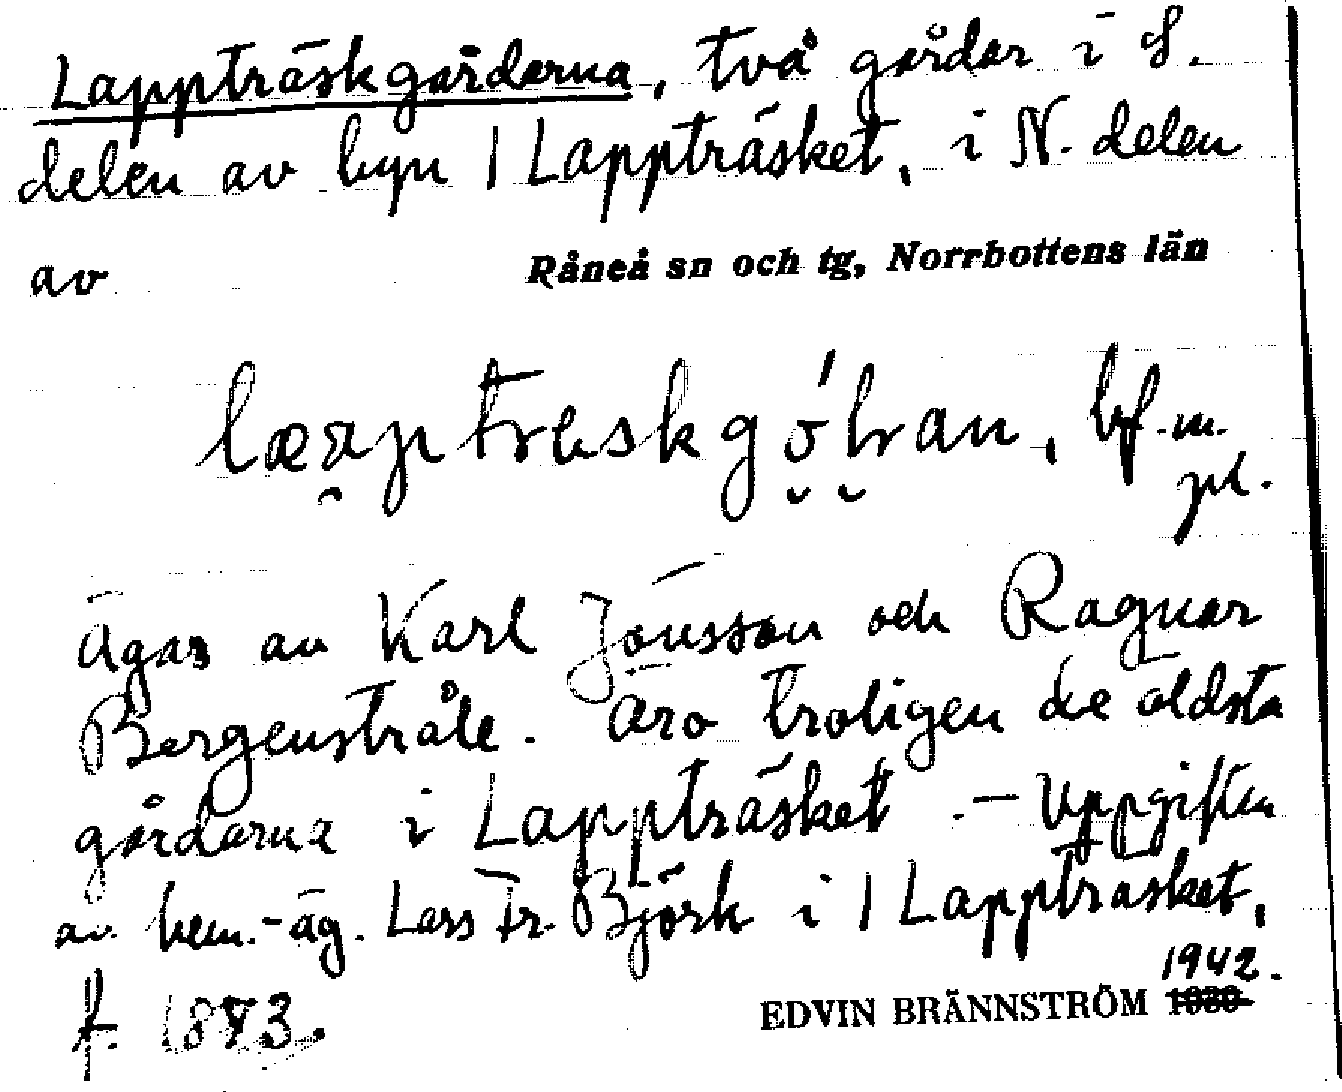 Lappträskgårdarna, två gårdar i S.
delen av byn 1 Lappträsket, i N. delen
av Råneå sn och tg, Norrbottens län
bf. m.
pl.
Ägas av Karl Jönsson och Ragnar
Bergenstråle. Äro troligen de äldsta
gårdarna i Lappträsket. – Uppgiften
av hem.-äg. Lars Fr. Björk i 1 Lappträsket,
f. 1873.
1942.
EDVIN BRÄNNSTRÖM 1930